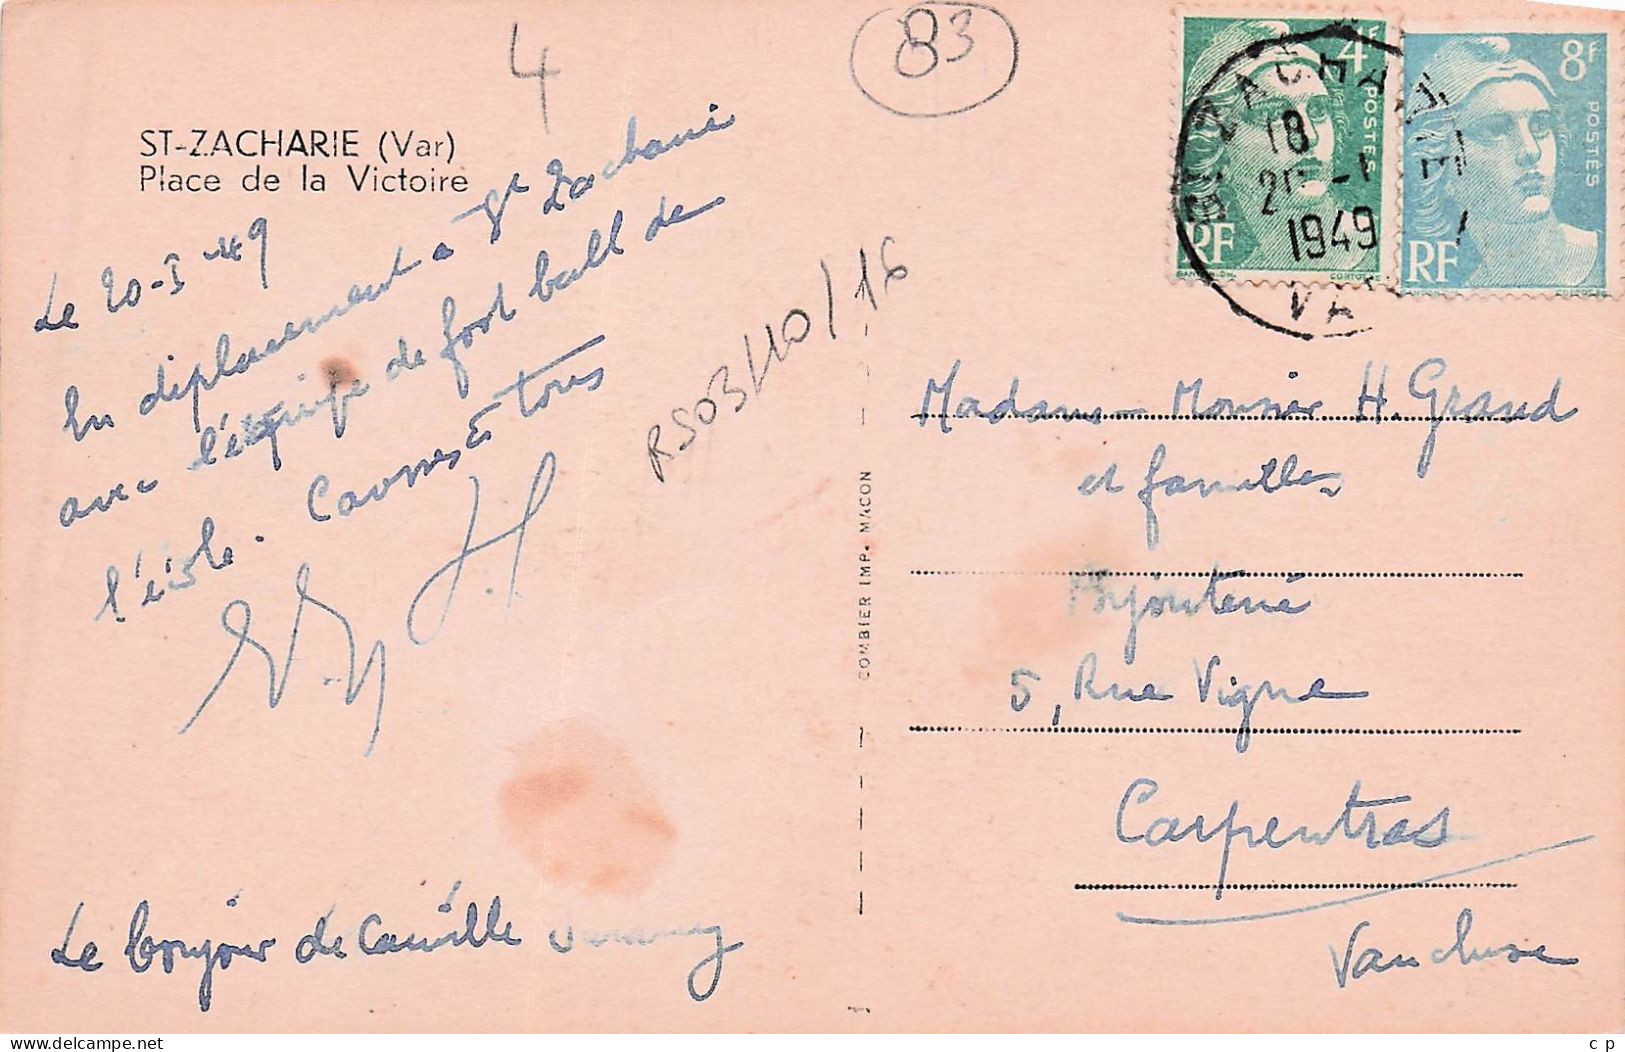 4
83
ST-ZACHARIE (Var)
Place de la Victoire
Le 20-1-49
En déplacement a St Zacharie
avec l'équipe de foot ball de
l'école. Tous
Le bonjour de Camille
RS03/10/16
COMBIER IMP. MACON
4F
POSTES
RF
8F
POSTES
RF
ZACHARIE
18
1949
VAR
Madame - Monsieur H. Grand
et familles
Bijouterie
5, Rue Vigne
Carpentras
Vaucluse
www.delcampe.net
c p